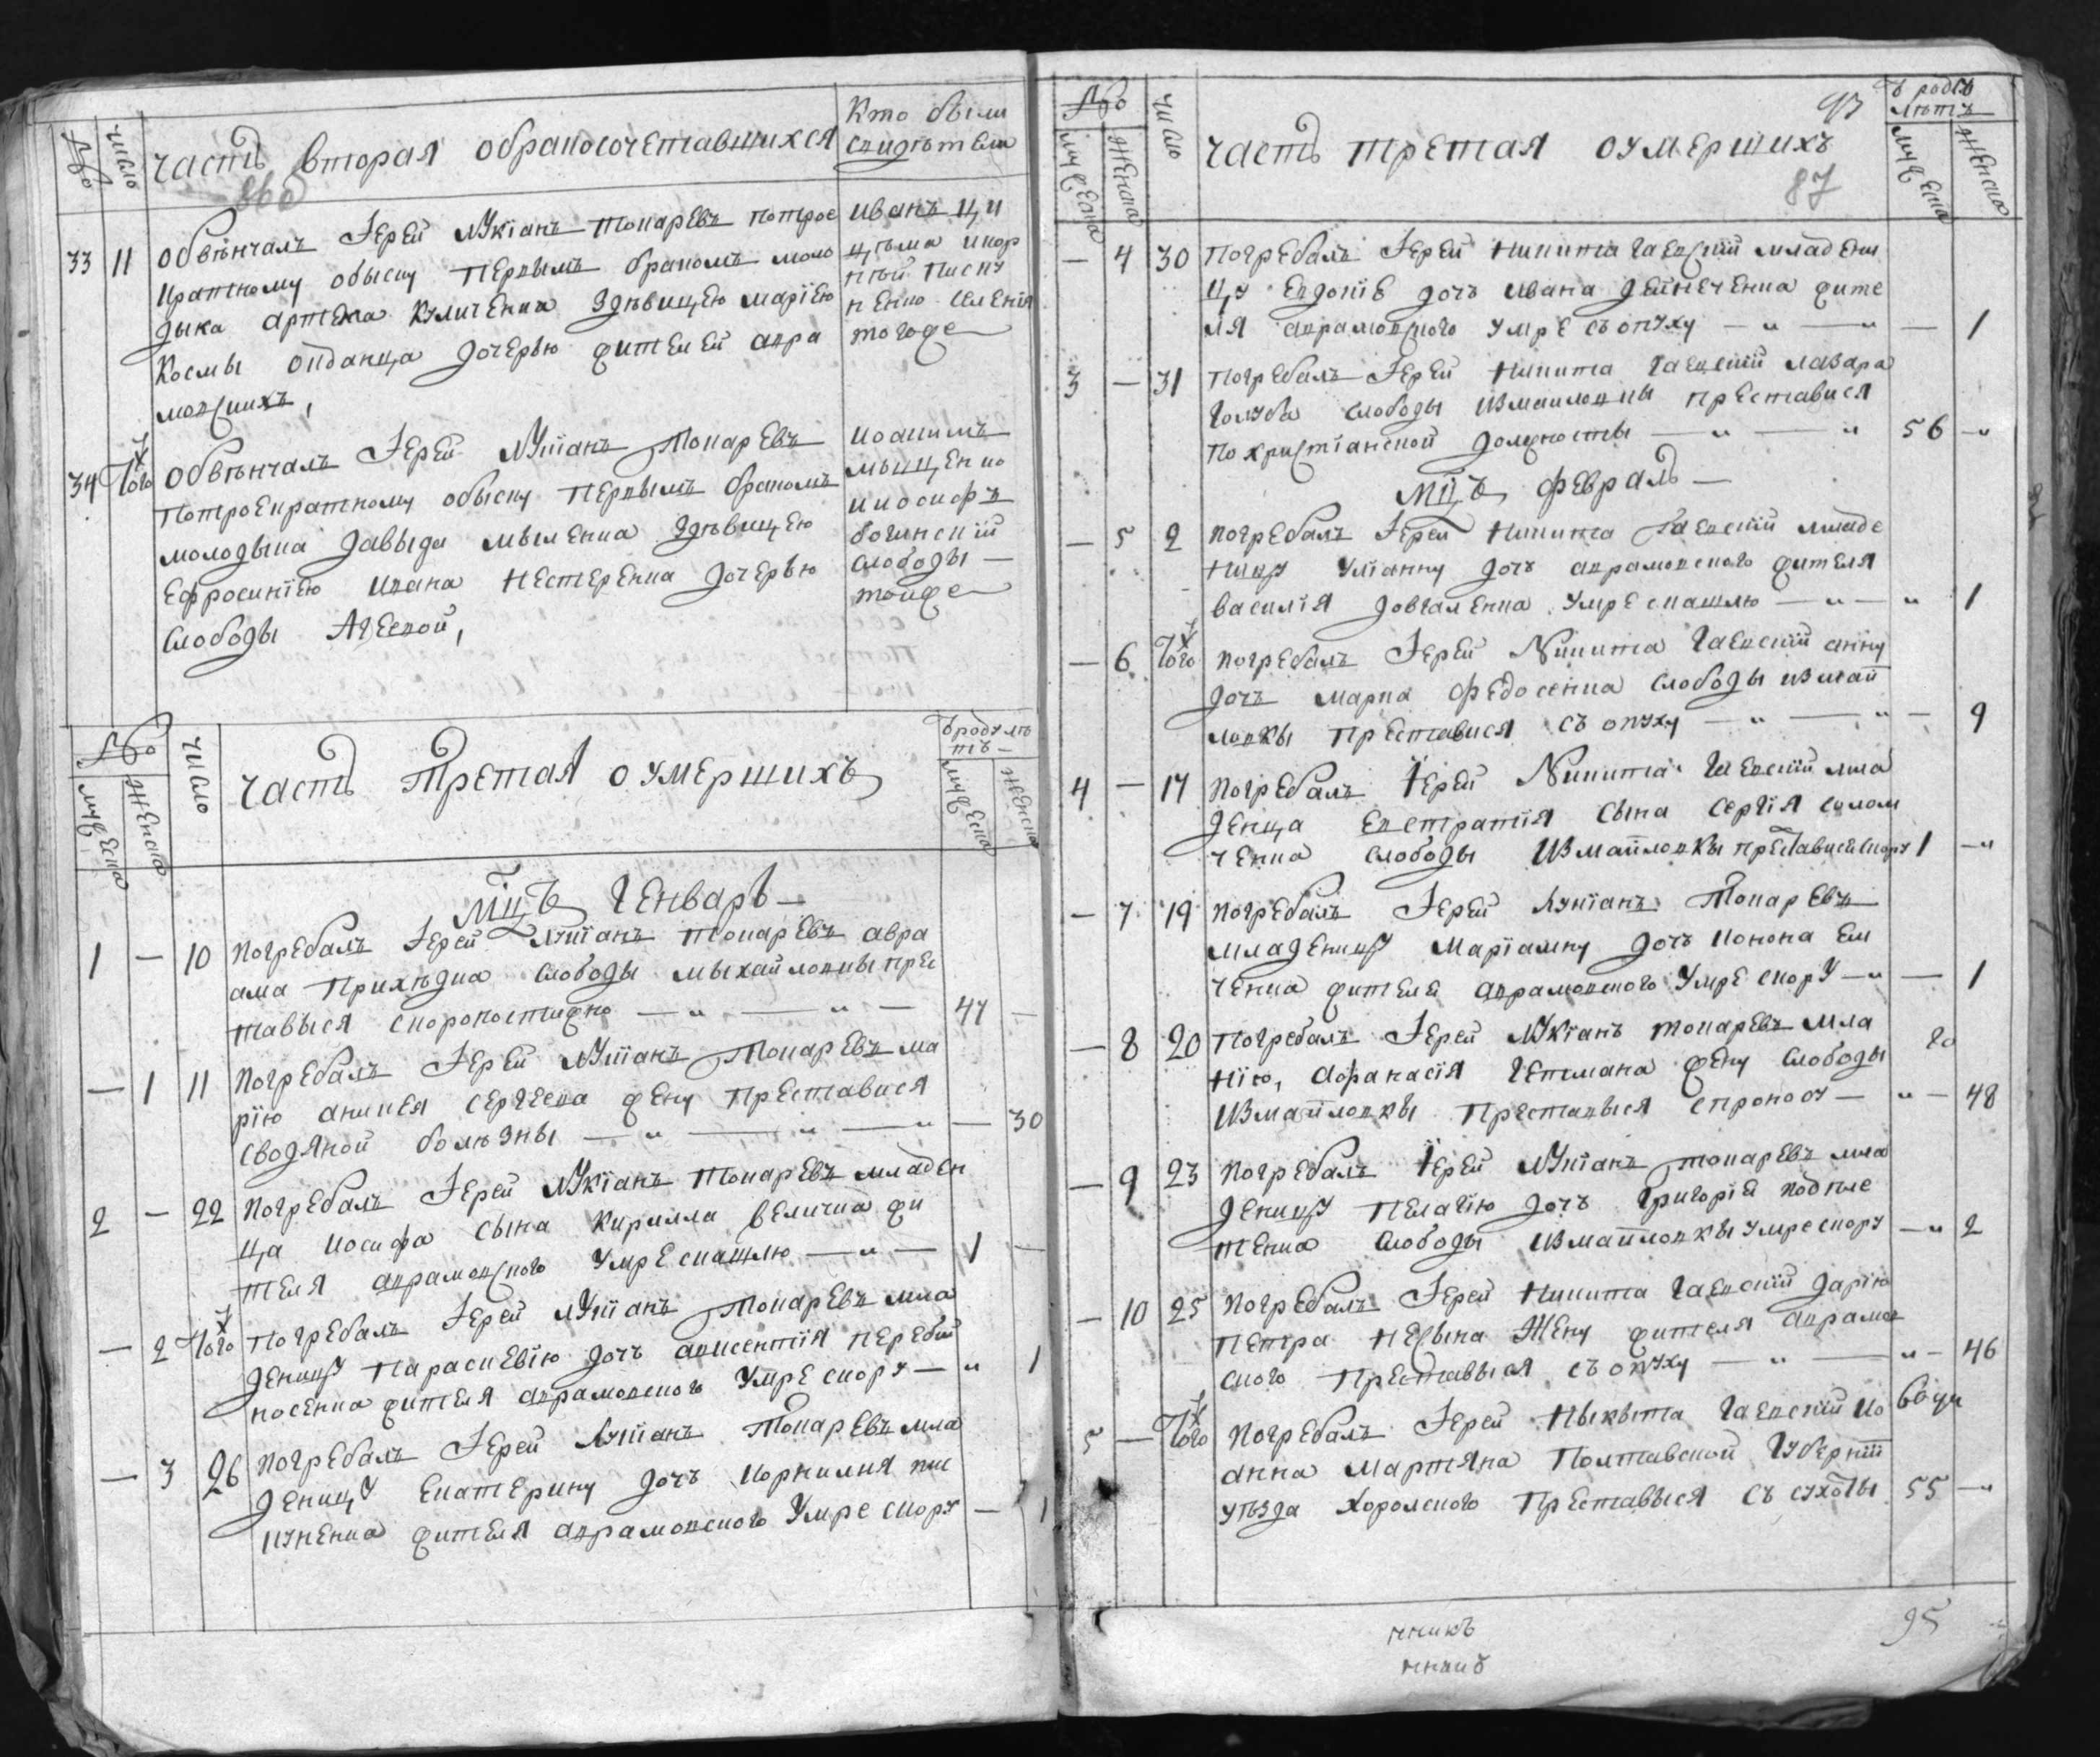 №
число
часть вторая обракосочетавшихся
Кто были
свидѣтели
33 11
обвѣнчалъ Іерей Лукіанъ Токаревъ потрое
кратному обыску первымъ бракомъ моло
дыка Артема Куличенка здѣвицею Маріею
Космы дочерью жителей авра
мовскихъ,
Иванъ
того же
34 Того
обвѣнчалъ Іерей Лукіанъ Токаревъ
потроекратному обыску первымъ бракомъ
молодыка Давыда Мыленка здѣвицею
Ефросиніею Ивана Нестеренка дочерью
слободы
Иоакимъ
и Иосифъ
слободы —
тойже
№
число
часть третая оумершихъ
вроду лѣ
тъ —
мужеска
женска
мужеска
женска
мцъ Генварь —
1 — 10
погребалъ Іерей Лукіанъ Токаревъ Авра
ама слободы Мыхайловкы прес
тавыся скоропостижно — „ — „ — 47 —
— 1 11
погребалъ Іерей Лукіанъ Токаревъ Ма
рію Сергеева жену преставися
сводяной болѣзны — „ — „ — „ — 30
2 — 22
погребалъ Іерей Лукіанъ Токаревъ младен
ца Иосифа сына Кирилла Величка жи
теля аврамовского умре скашлю — „ — 1 —
— 2 Того
погребалъ Іерей Лукіанъ Токаревъ мла
деницу Параскевію дочъ Авксентія Перебий
носенка жителя аврамовского умре скору — „ 1
— 3 26
погребалъ Іерей Лукіанъ Токаревъ мла
деницу Екатерину дочъ Корнилия
жителя аврамовского умре скору — 1
№
число
часть третая оумершихъ
87
вродѣ
лѣтъ
мужеска
женска
мужеска
женска
— 4 30
погребалъ Іерей Никита Гаевскій младени
цу Евдокіе дочъ Ивана Дейнеченка жите
ля аврамовского умре съ опуху — „ — „ — 1
3 — 31
погребалъ Іерей Никита Гаевскій Лазара
Голуба слободы Измаиловкы преставися
по христіанской должносты — „ — „ 56 — „
мцъ февраль —
— 5 2
погребалъ Іерей Никита Гаевскій младе
ницу Уліанну дочъ аврамовского жителя
Василія Довгаленка умре скашлю — „ — „ 1
— 6 Того
погребалъ Іерей Никита Гаевскій Анну
дочъ Марка Федосенка слободы Измай
ловкы преставися съ опуху — „ — „ — 9
4 — 17
погребалъ Іерей Никита Гаевскій мла
денца Евстратія сына Сергія
ченка слободы Измайловкы преставися скору 1 — „
— 7 19
погребалъ Іерей Лукіанъ Токаревъ
младеницу Маріамну дочъ Конона Ем
ченка жителя аврамовского умре скору — „ — 1
— 8 20
погребалъ Іерей Лукіанъ Токаревъ Мла
нію, Афанасія Гетмана жену слободы
Измайловкы преставыся — „ — 48
20
— 9 23
погребалъ Іерей Лукіанъ Токаревъ мла
деницу Пелагію дочъ Григорія Подпле
тенка слободы Измайловкы умре скору — „ 2
— 10 25
погребалъ Іерей Никита Гаевскій Дарію
Петра жену жителя аврамов
ского преставыся съ опуху — „ — „ — 46
5 — Того
погребалъ Іерей Ныкыта Гаевскій Ио
анна Мартяна Полтавской Губерніи
уѣзда Хоролского преставыся съ сухоты 55 — „
95